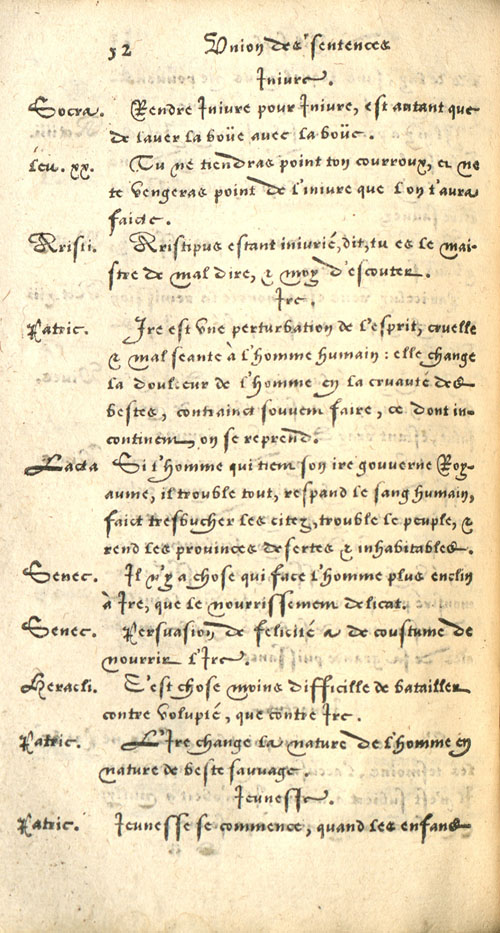 52 Vnion des sentences
Iniure.
Socra. Rendre Iniure pour Iniure, est autant que
de lauer la boüe auec la boüe.
Leu. xx. Tu ne tiendras point ton courroux, et ne
te vengeras point de l'iniure que l'on t'aura
faicte.
Aristi. Aristipus estant iniurié, dit, tu es le mai-
stre de mal dire, & moy d'escouter.
Ire.
Patric. Ire est vne perturbation de l'esprit, cruelle
& mal seante à l'homme humain: elle change
la douleur de l'homme en la cruauté des
bestes, contrainct souuent faire, ce dont in-
continent, on se reprend.
Lacta Si l'homme qui tient son ire gouuerne Roy-
aume, il trouble tout, respand le sang humain,
faict tresbucher les citez, trouble le peuple, &
rend les prouinces desertes & inhabitables.
Senec. Il n'y a chose qui face l'homme plus enclin
à Ire, que le nourrissement delicat.
Senec. Persuasion de felicité a de coustume de
nourrir l'Ire.
Heracli. C'est chose moins difficille de batailler
contre volupté, que contre Ire.
Patric. L'Ire change la nature de l'homme en
nature de beste sauuage.
Ieunesse.
Patric. Ieunesse se commence, quand les enfans